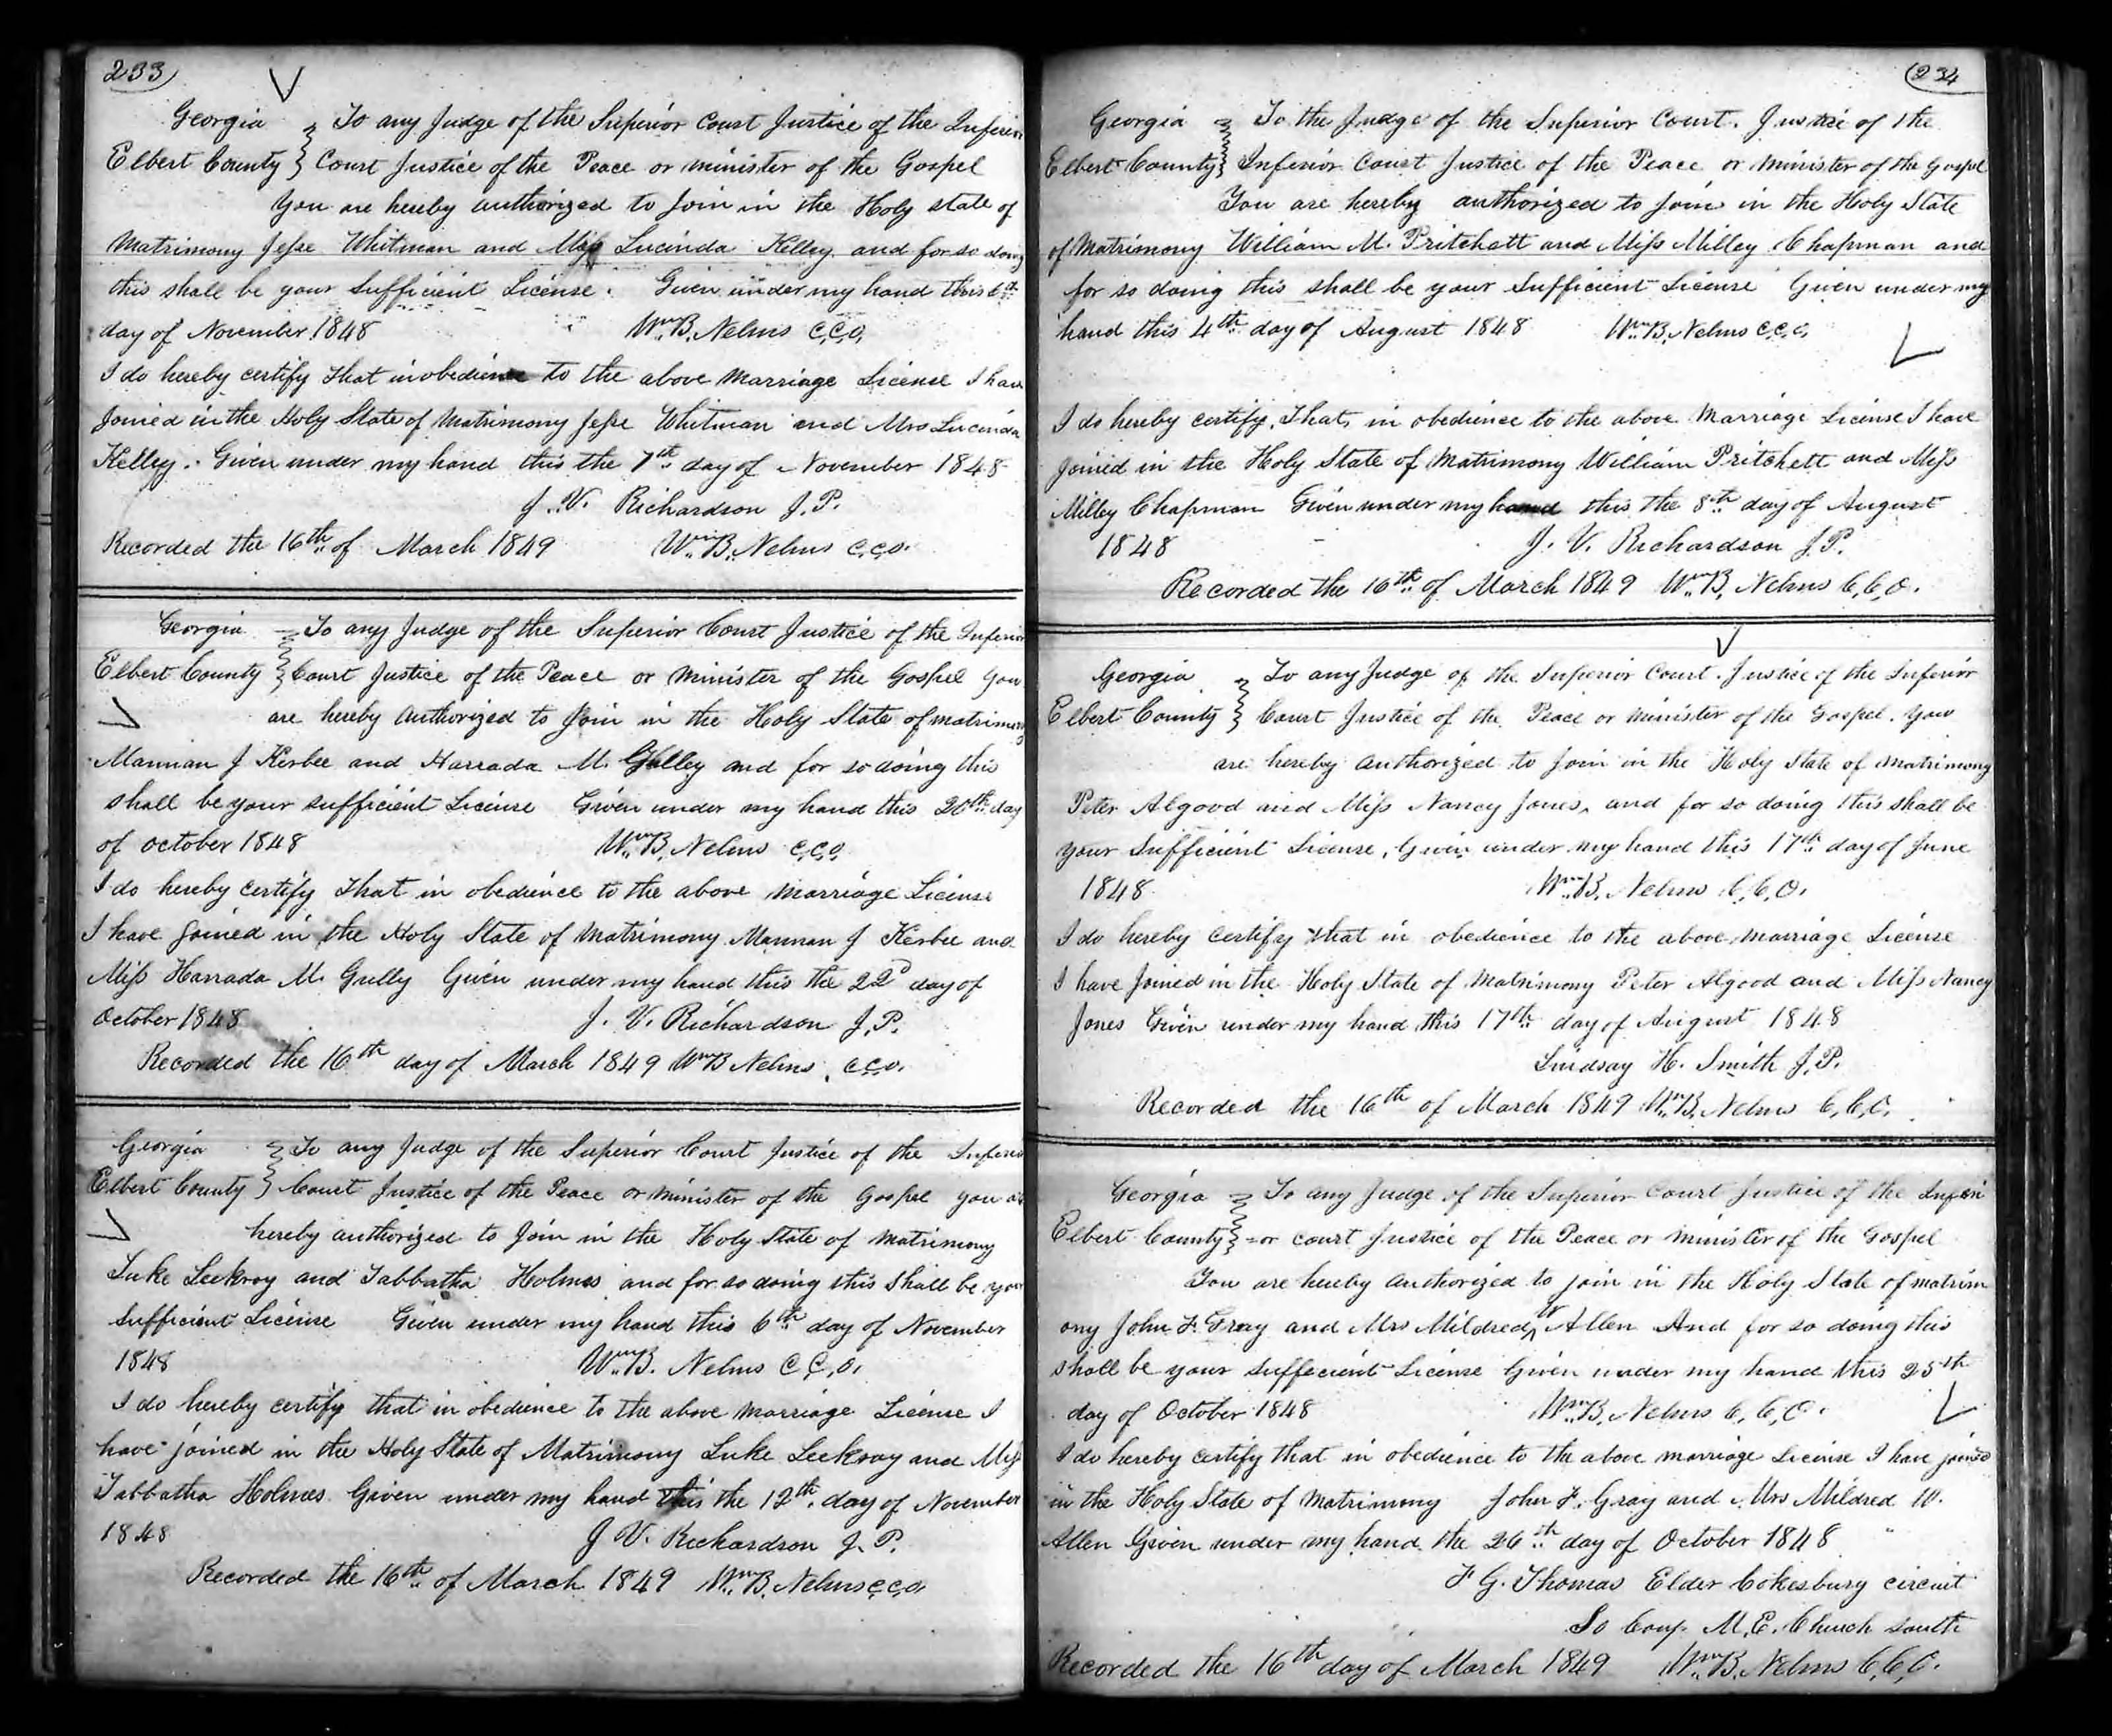 233
Georgia } To any Judge of the Superior Court Justice of the Inferior
Elbert County } Court Justice of the Peace or minister of the Gospel
You are hereby authorized to Join in the Holy state of
Matrimony Jesse Whitman and Miss Lucinda Kelley and for so doing
this shall be your sufficient License. Given under my hand this 6th
day of November 1848 Wm B. Nelms C.C.O.
I do hereby certify that in obedience to the above Marriage License I have
Joined in the Holy State of Matrimony Jesse Whitman and Mrs Lucinda
Kelley. Given under my hand this the 7th day of November 1848
J. V. Richardson J.P.
Recorded the 16th of March 1849 Wm B. Nelms C.C.O.
Georgia } To any Judge of the Superior Court Justice of the Inferior
Elbert County } Court Justice of the Peace or Minister of the Gospel You
are hereby authorized to Join in the Holy State of matrimony
Mannan J Kerbee and Harrada M. Gulley and for so doing this
shall be your sufficient License Given under my hand this 20th day
of October 1848 Wm B. Nelms C.C.O.
I do hereby certify that in obedience to the above Marriage License
I have Joined in the Holy State of Matrimony Mannan J Kerbee and
Miss Harrada M. Gully Given under my hand this the 22d day of
October 1848 J. V. Richardson J.P.
Recorded the 16th day of March 1849 Wm B Nelms. C.C.O.
Georgia } To any Judge of the Superior Court Justice of the Inferior
Elbert County } Court Justice of the Peace or Minister of the Gospel you are
hereby authorized to Join in the Holy State of Matrimony
Luke Leekroy and Tabbatha Holmes and for so doing this Shall be your
sufficient License Given under my hand this 6th day of November
1848 Wm B. Nelms C.C.O.
I do hereby certify that in obedience to the above Marriage License I
have joined in the Holy State of Matrimony Luke Leekroy and Miss
Tabbatha Holmes Given under my hand this the 12th day of November
1848 J V. Richardson J. P.
Recorded the 16th of March 1849 Wm B. Nelms C.C.O.
234
Georgia } To the Judge of the Superior Court. Justice of the
Elbert County } Inferior Court Justice of the Peace or Minister of the Gospel
You are hereby authorized to Join in the Holy State
of Matrimony William M. Pritchett and Miss Milley Chapman and
for so doing this shall be your sufficient License Given under my
hand this 4th day of August 1848 Wm B. Nelms C.C.O.
I do hereby certify, That, in obedience to the above Marriage License I have
Joined in the Holy State of Matrimony William Pritchett and Miss
Milley Chapman Given under my hand this the 8th day of August
1848 J. V. Richardson J.P.
Recorded the 16th of March 1849 Wm B. Nelms C.C.O.
Georgia } To any Judge of the Superior Court. Justice of the Inferior
Elbert County } Court Justice of the Peace or Minister of the Gospel. You
are hereby authorized to Join in the Holy State of Matrimony
Peter Algood and Miss Nancy Jones, and for so doing this shall be
your sufficient License, Given under my hand this 17th day of June
1848 Wm B. Nelms C.C.O.
I do hereby certify that in obedience to the above Marriage License
I have Joined in the Holy State of Matrimony Peter Algood and Miss Nancy
Jones Given under my hand this 17th day of August 1848
Lindsay H. Smith J.P.
Recorded the 16th of March 1849 Wm B. Nelms C.C.O.
Georgia } To any Judge of the Superior Court Justice of the Inferi
Elbert County } =or Court Justice of the Peace or Minister of the Gospel
You are hereby authorized to join in the Holy State of matrim
ony John F. Gray and Mrs Mildred W Allen And for so doing this
shall be your sufficient License Given under my hand this 25th
day of October 1848 Wm B. Nelms C.C.O.
I do hereby certify that in obedience to the above marriage License I have joined
in the Holy State of Matrimony John F. Gray and Mrs Mildred W.
Allen Given under my hand the 26th day of October 1848
F G. Thomas Elder Cokesbury circuit
So Conf. M.E. Church south
Recorded the 16th day of March 1849 Wm B. Nelms C.C.O.